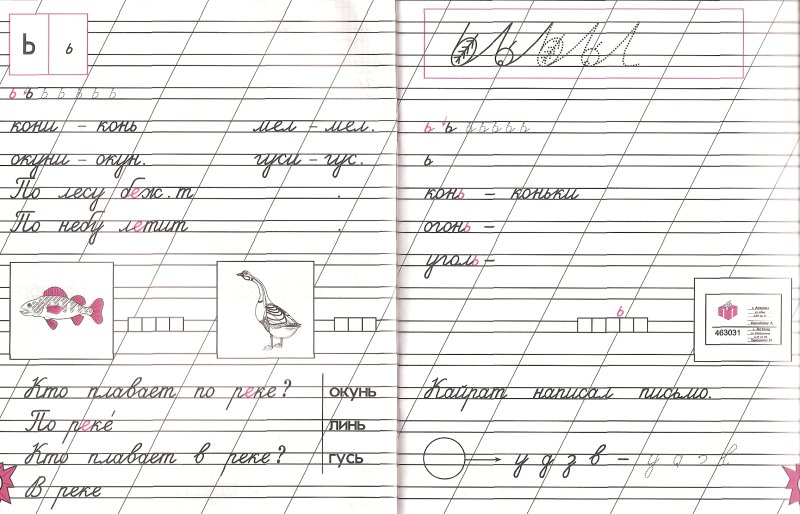 ь ь
ь ь ь ь ь ь ь
кони – конь мел – мел.
окуни – окун. гуси – гус.
По лесу беж.т .
По небу летит .
Кто плавает по реке? окунь
По реке линь
Кто плавает в реке? гусь
В реке
ь ь ь ь ь
ь ь ь ь ь ь ь
ь
конь – коньки
огонь –
уголь –
ь
463031
Кайрат написал письмо.
у д з в – у д з в